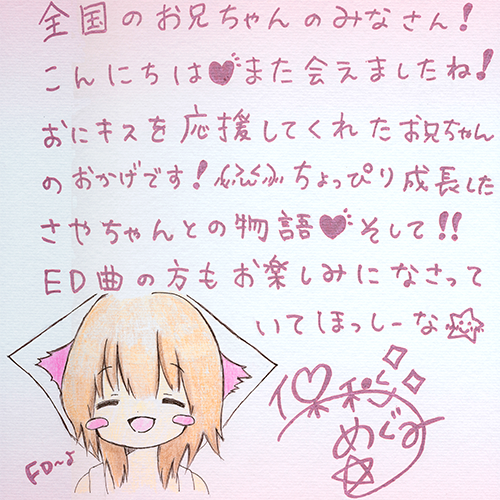 全国のお兄ちゃんのみなさん!
こんにちは♥また会えましたね!
おにキスを応援してくれたお兄ちゃん
のおかげです!ふふふちょっぴり成長した
さやちゃんとの物語♥そして!!
ED曲の方もお楽しみになさって
いてほっしーな☆
めぐみ
ED〜♪